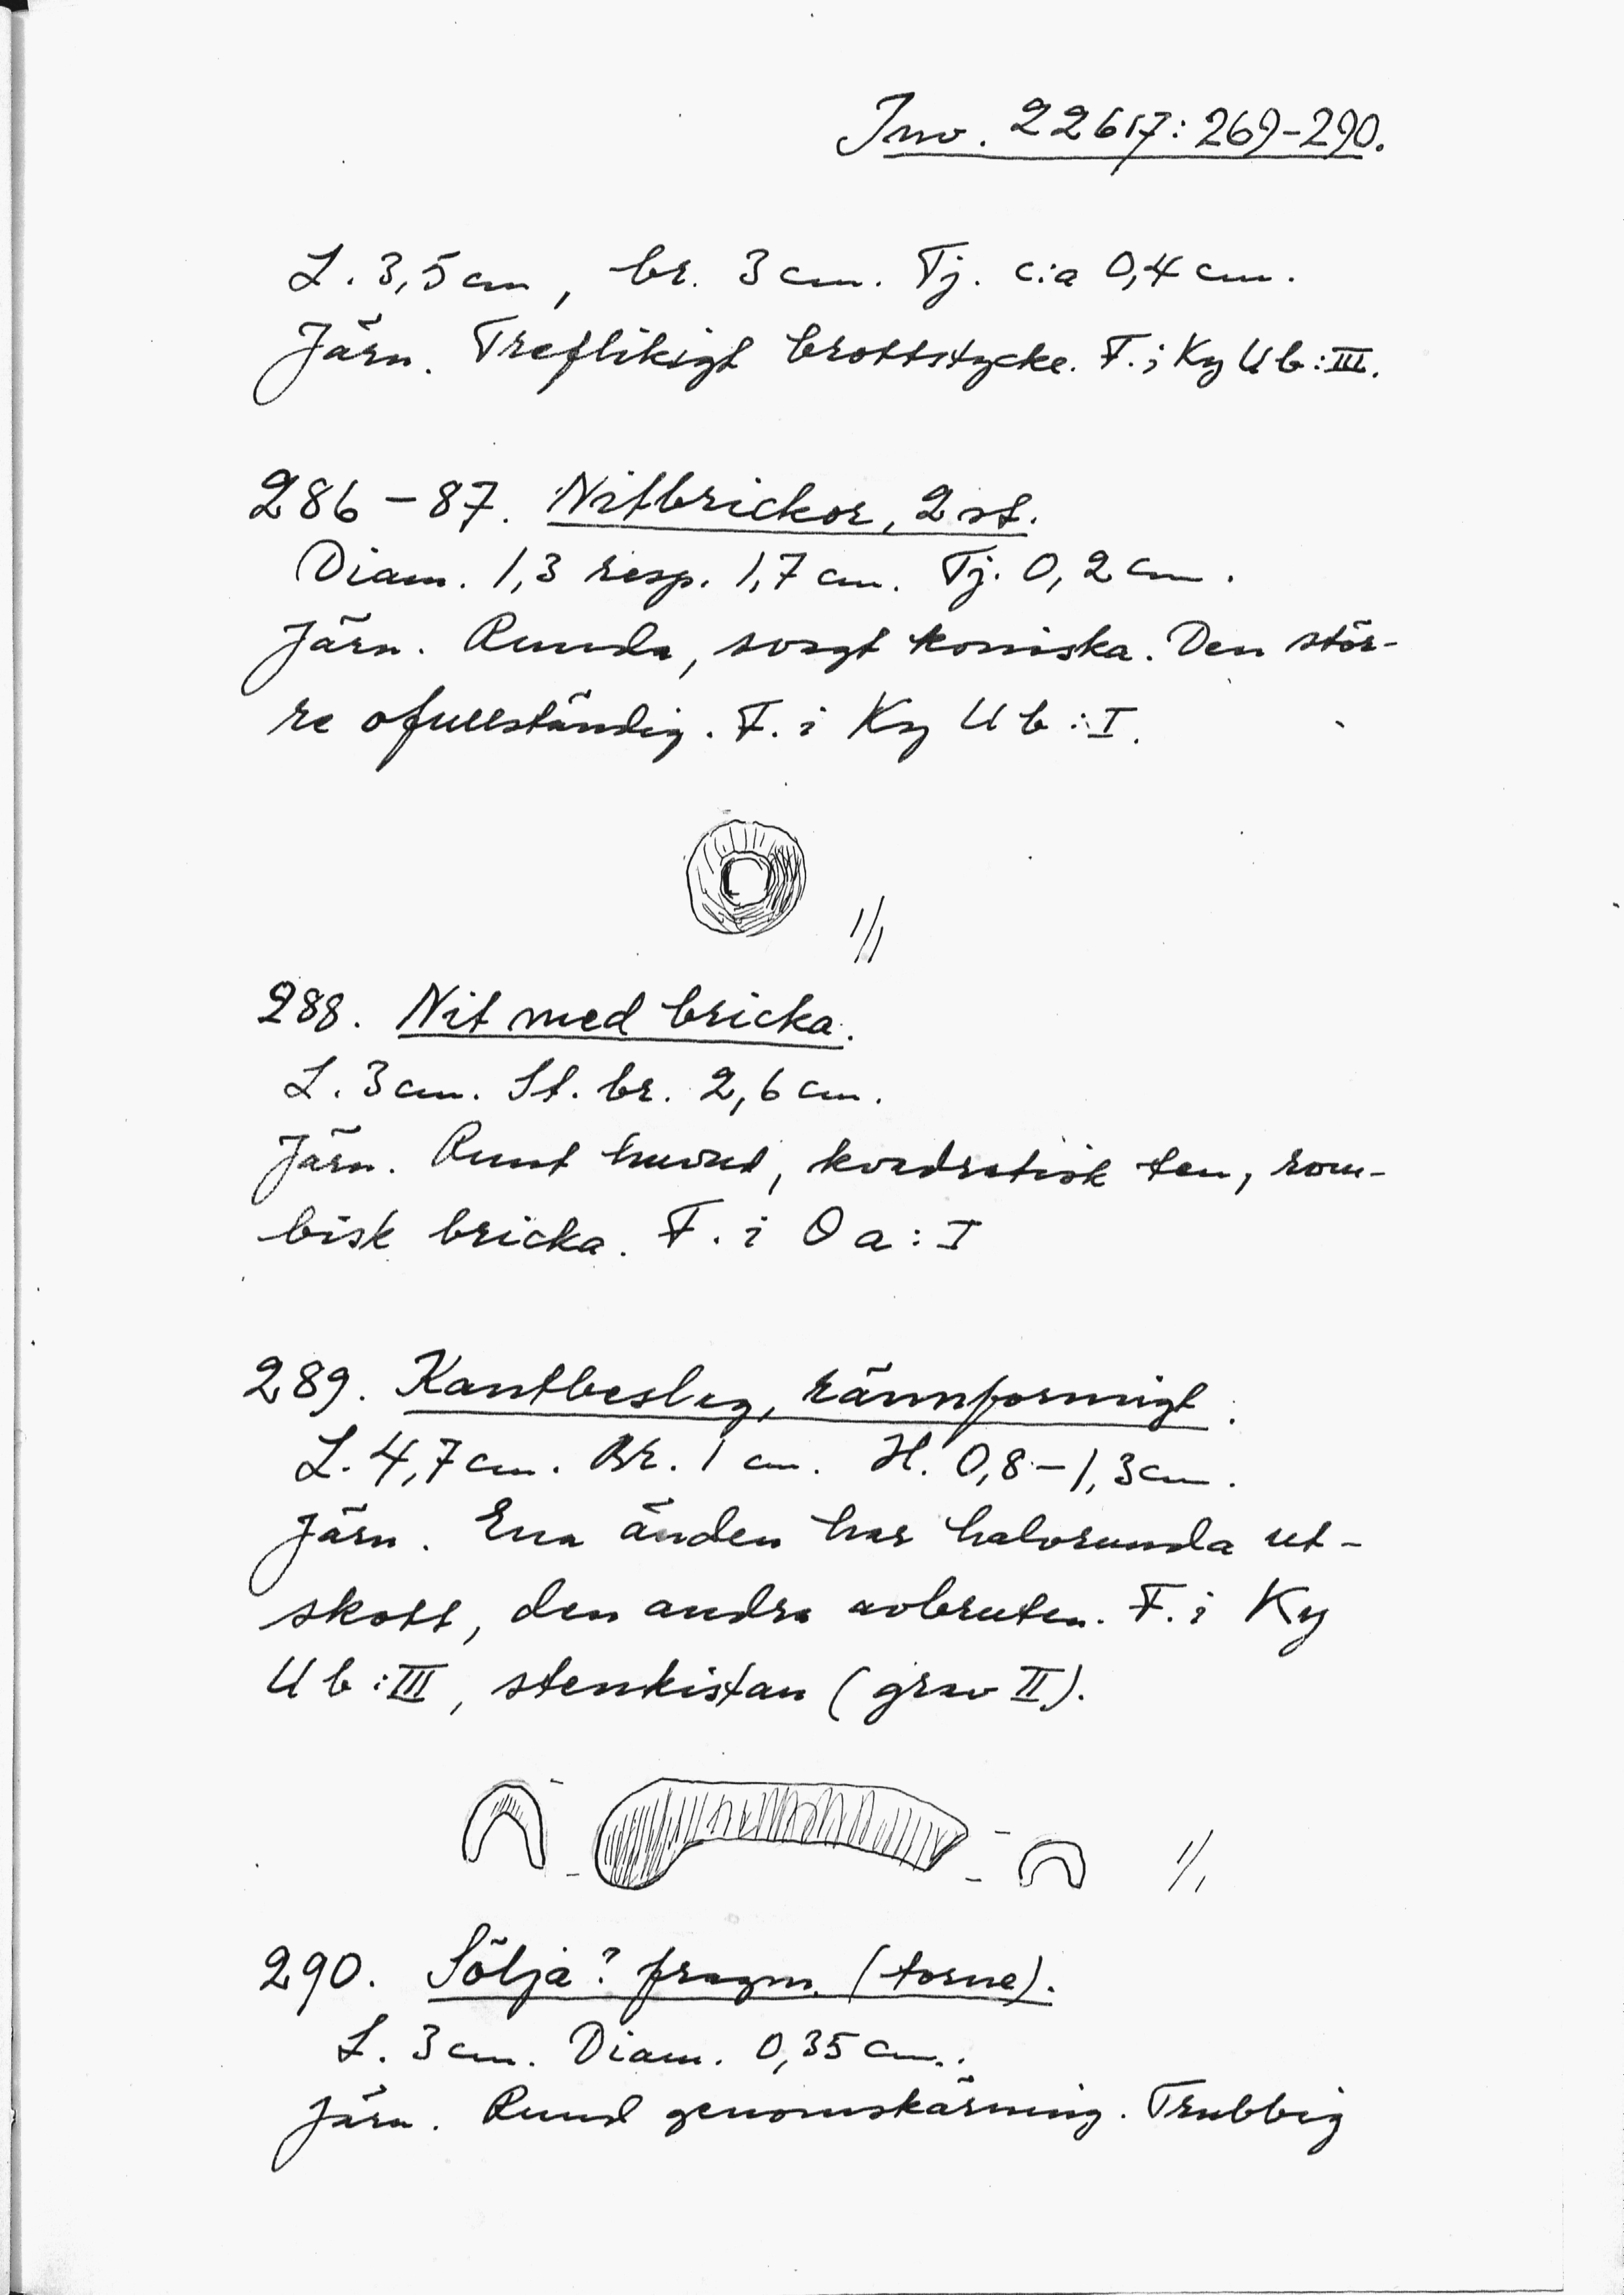 Inv. 22617:269-290.
L. 3,5 cm, br. 3 cm. Tj. c:a 0,4 cm.
Järn. Treflikigt brottstycke. F. i Ky U b:III.
286-87. Nitbrickor, 2 st.
Diam. 1,3 resp. 1,7 cm. Tj. 0,2 cm.
Järn. Runda, svagt koniska. Den stör-
re ofullständig. F. i Ky U b:I.
1/1
288. Nit med bricka.
L. 3 cm. St. br. 2,6 cm.
Järn. Runt huvud, kvadratisk ten, rom-
bisk bricka. F. i O a:I
289. Kantbeslag, rännformigt.
L. 4,7 cm. Br. 1 cm. H. 0,8-1,3 cm.
Järn. Ena änden har halvrunda ut-
skott, den andra avbruten. F. i Ky
U b:III, stenkistan (grav II).
1/1
290. Sölja? fragm. (torne).
L. 3 cm. Diam. 0,35 cm.
Järn. Rund genomskärning. Trubbig